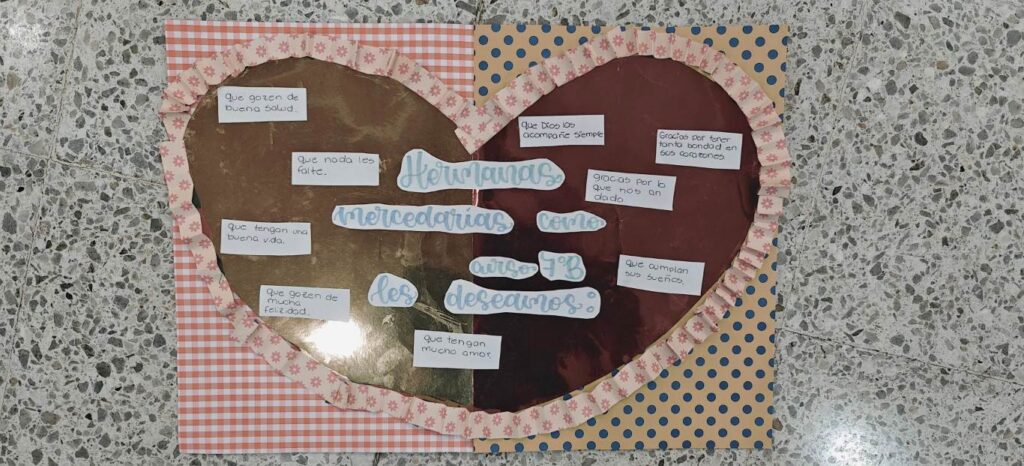 Hermanas
mercedarias como
curso 7°B
les deseamos:
que gozen de
buena salud.
que nada les
falte.
que tengan una
buena vida.
que gozen de
mucha
felizidad.
que tengan
mucho amor.
que Dios las
acompañe siempre
Gracias por tener
tanta bondad en
sus corazones.
gracias por lo
que nos an
dado.
que cumplan
sus sueños.